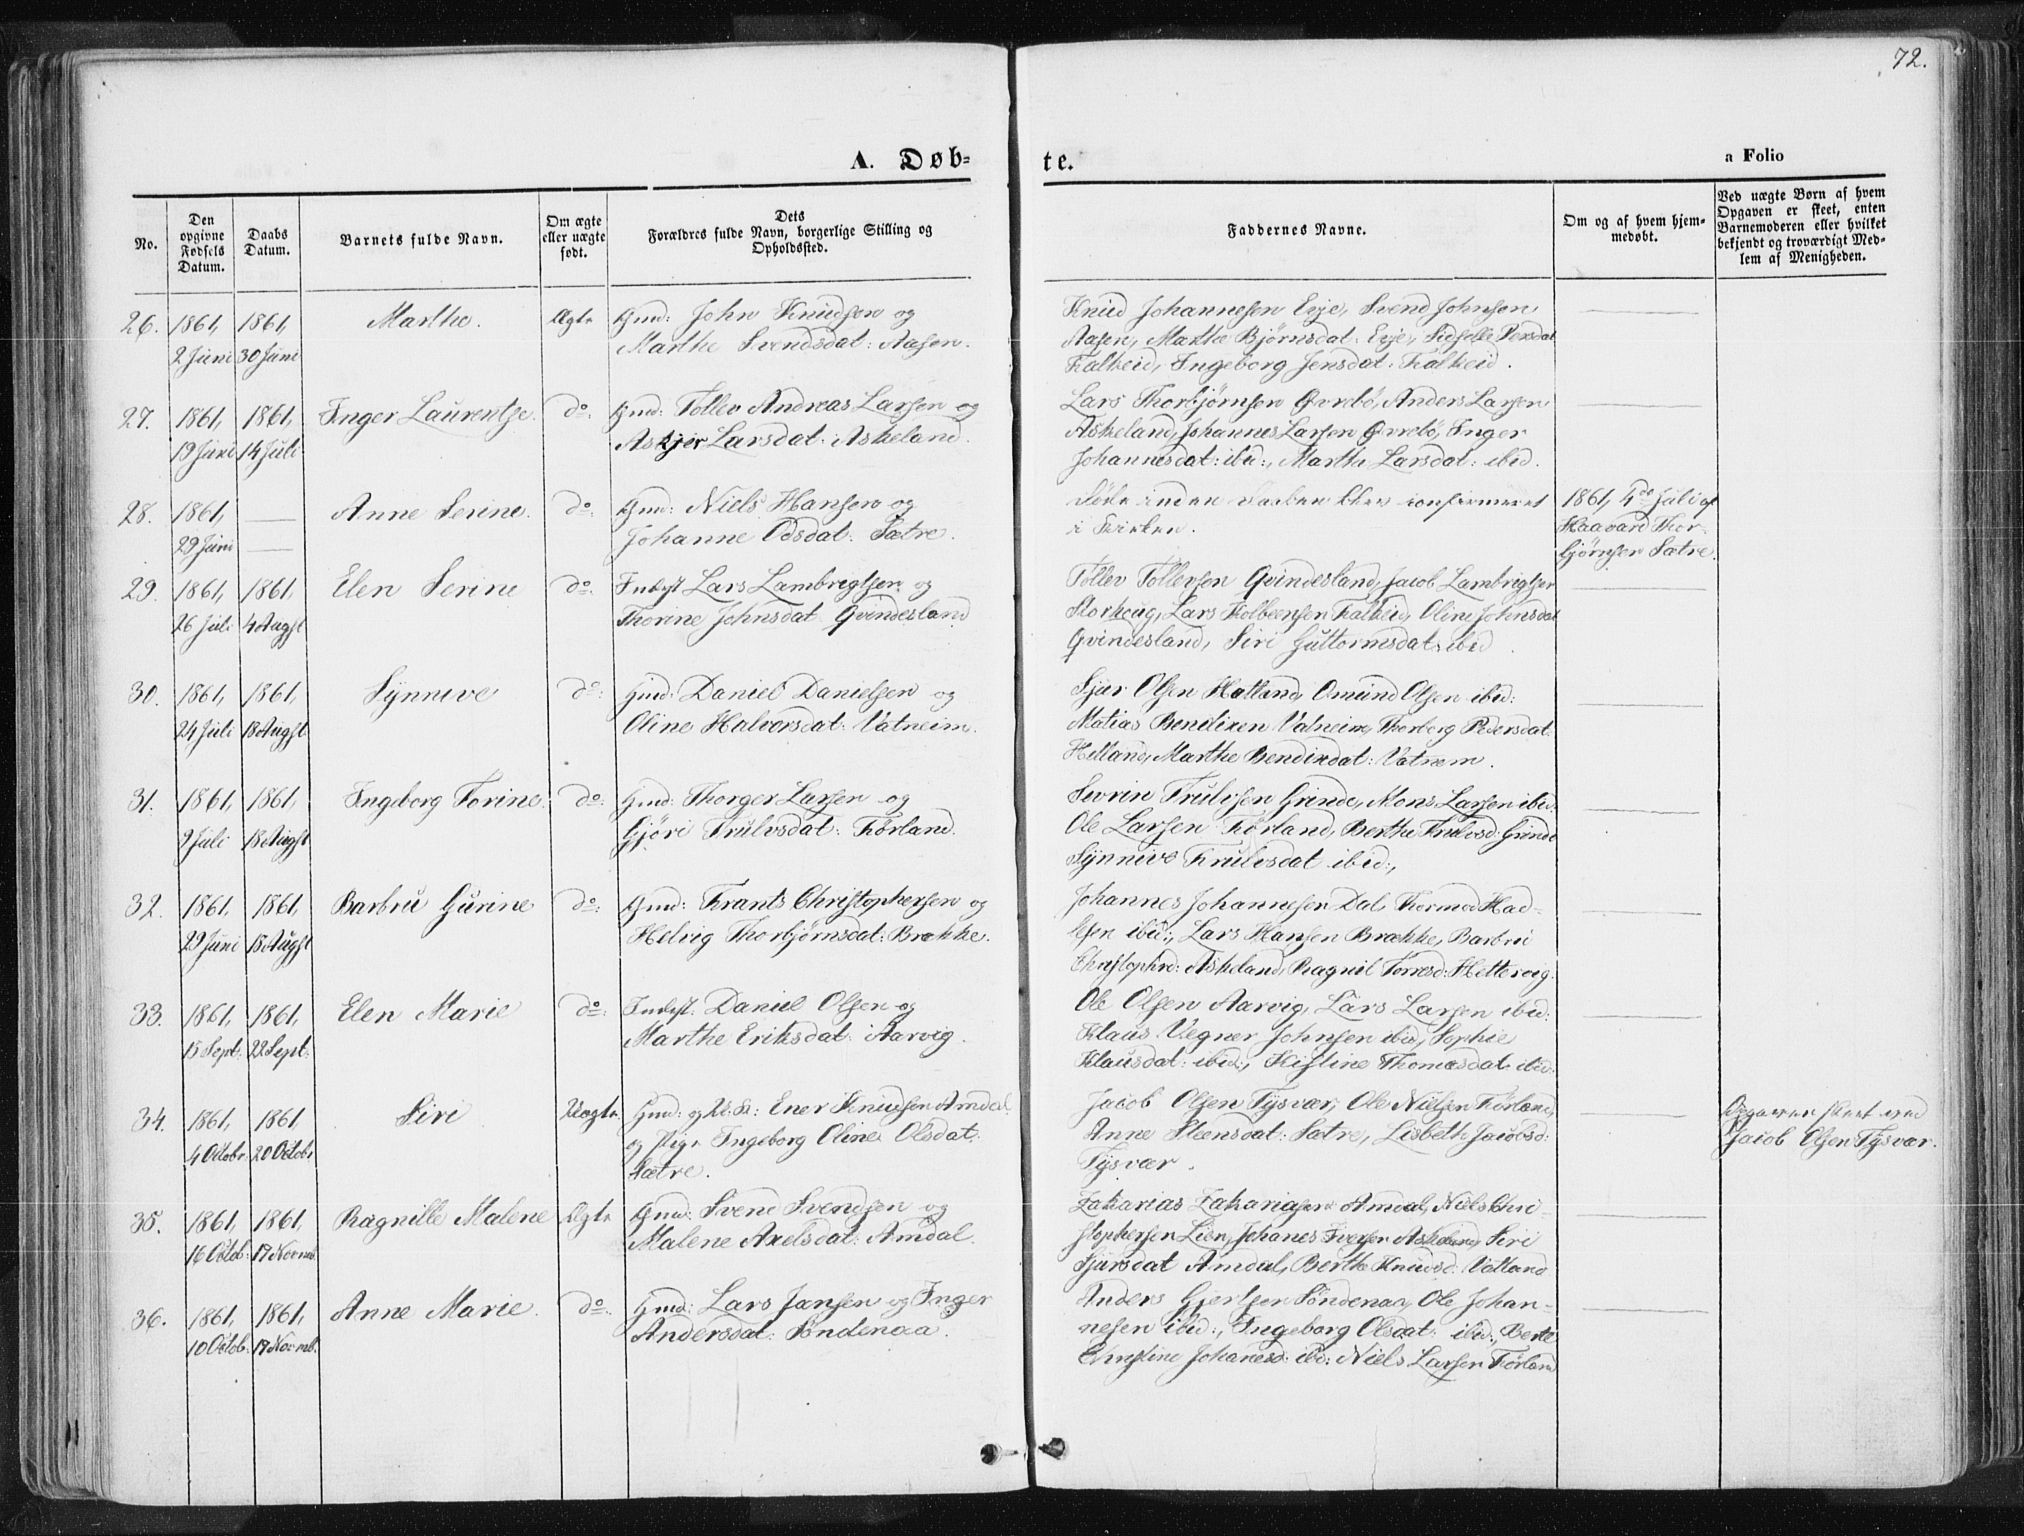 72.
A. Døb-
te.
a Folio
No.
Den opgivne Fødsels Datum.
Daabs Datum.
Barnets fulde Navn.
Om ægte eller uægte født.
Dets Forældres fulde Navn, borgerlige Stilling og Opholdssted.
Faddernes Navne.
Om og af hvem hjemmedøbt.
Ved uægte Børn af hvem Opgaven er skeet, enten Barnemoderen eller hvilket bekjendt og troværdigt Medlem af Menigheden.
26. 1861, 1861, Marthe. Ægte Gmd: John Knudsen og
2 Juni 30 Juni Marthe Svendsdat: Aasen.
Knud Johannesen Evje, Svend Johnsen
Aasen, Marthe Bjørnsdat: Evje, Sidselle Persdat
Falkeid, Ingeborg Jensdat: Falkeid.
27. 1861, 1861, Inger Laurentse. do. Gmd: Tollev Andreas Larsen og
19 Juni 14 Juli Askjer Larsdat: Askeland.
Lars Thorbjørnsen Øvrebö, Anders Larsen
Askeland, Johannes Larsen Øvrebö, Inger
Johannesdat: ibid:, Marthe Larsdat: ibid.
28. 1861, Anne Serine. do: Gmd: Niels Hansen og
29 Juni Johanne Odsdat: Sætre.
Døde inden Daaben blev confirmeret
i Kirken.
1861, 4de Juli af
Haavard Thor-
bjørnsen Sætre.
29. 1861, 1861, Elen Serine do: Inderst Lars Lambregtsen og
26 Juli 4 Augst Thorine Johnsdat: Qvindesland
Tollev Tollevsen Qvindesland, Jacob Lambrigtsen
Storhoug, Lars Kolbeensen Falkeid, Oline Johnsdat
Qvindesland, Siri Guttormsdat: ibid.
30. 1861, 1861, Synneve do: Gmd: Daniel Danielsen og
24 Juli 18 Augst Oline Halvorsdat: Vatneim.
Sjur Olsen Hetland, Omund Olsen ibid:
Matias Bendixen Vatneim, Thorborg Pedersdat:
Hetland, Marthe Bendixdat: Vatnem.
31. 1861, 1861, Ingeborg Torine. do: Gmd: Thorger Larsen og
9 Juli 18 Augst Gjøri Trulsdat: Førland.
Sevrin Trulssen Grinde, Mons Larsen ibid.
Ole Larsen Førland, Berthe Trulsd: Grinde
Synnive Trulsdat ibid:,
32. 1861, 1861, Barbru Gurine do: Gmd: Frants Christophersen og
29 Juni 18 Augst Helvig Thorbjørnsdat: Brække.
Johannes Johannesen Dal, Thormod Had-
lesen ibid:, Lars Hansen Brække, Barbru
Christophrd: Askeland, Ragnil Torresd: Hettervig.
33. 1861, 1861, Elen Marie do: Inderst: Daniel Olsen og
15 Sept: 22 Sept: Marthe Eriksdat: Aarvig.
Ole Olsen Aarvig, Lars Larsen ibid:
Klaus Vegner Johnsen ibid, Sophie
Klausdat: ibid:, Kistine Thomasdat: ibid:
34. 1861, 1861 Siri Uægte. Gmd: og Ener Knudsen Amdal
4 Octobr 20 Octobr og Pige Ingeborg Oline Olsdat:
Sætre.
Jacob Olsen Tysvær, Ole Nielsen Førland,
Anne Steensdat: Sætre, Lisbeth Jacobsd:
Tysvær.
Opgaven skeet ved
Jacob Olsen Tysvær.
35. 1861, 1861, Ragnille Malene Ægte Gmd: Svend Svendsen og
16 Octob: 17 Novmb. Malene Axelsdat: Amdal.
Zakarias Zakariasen Amdal, Niels Chri-
stophersen Lien, Johanes Iversen Askeland, Siri
Sjursdat Amdal, Berthe Knudsd: Vatland
36. 1861, 1861, Anne Marie. do. Gmd: Lars Jansen og Inger
10 Octob. 17 Novmb. Andersdat: Söndenaa.
Anders Gjertsen Söndenaa, Ole Johan-
nesen ibid:, Ingeborg Olsdat: ibid:, Berte
Christine Johanesd: ibid: Niels Larsen Førland